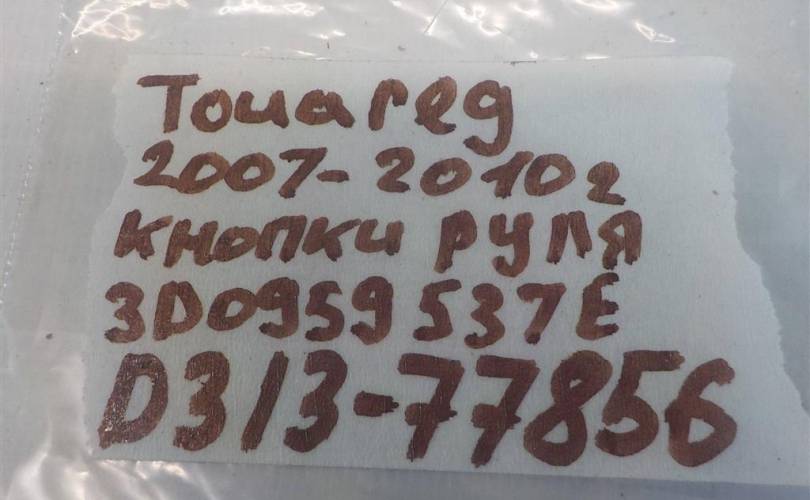 Touareg
2007-2010г
кнопки руля
3D0959537E
D313-77856